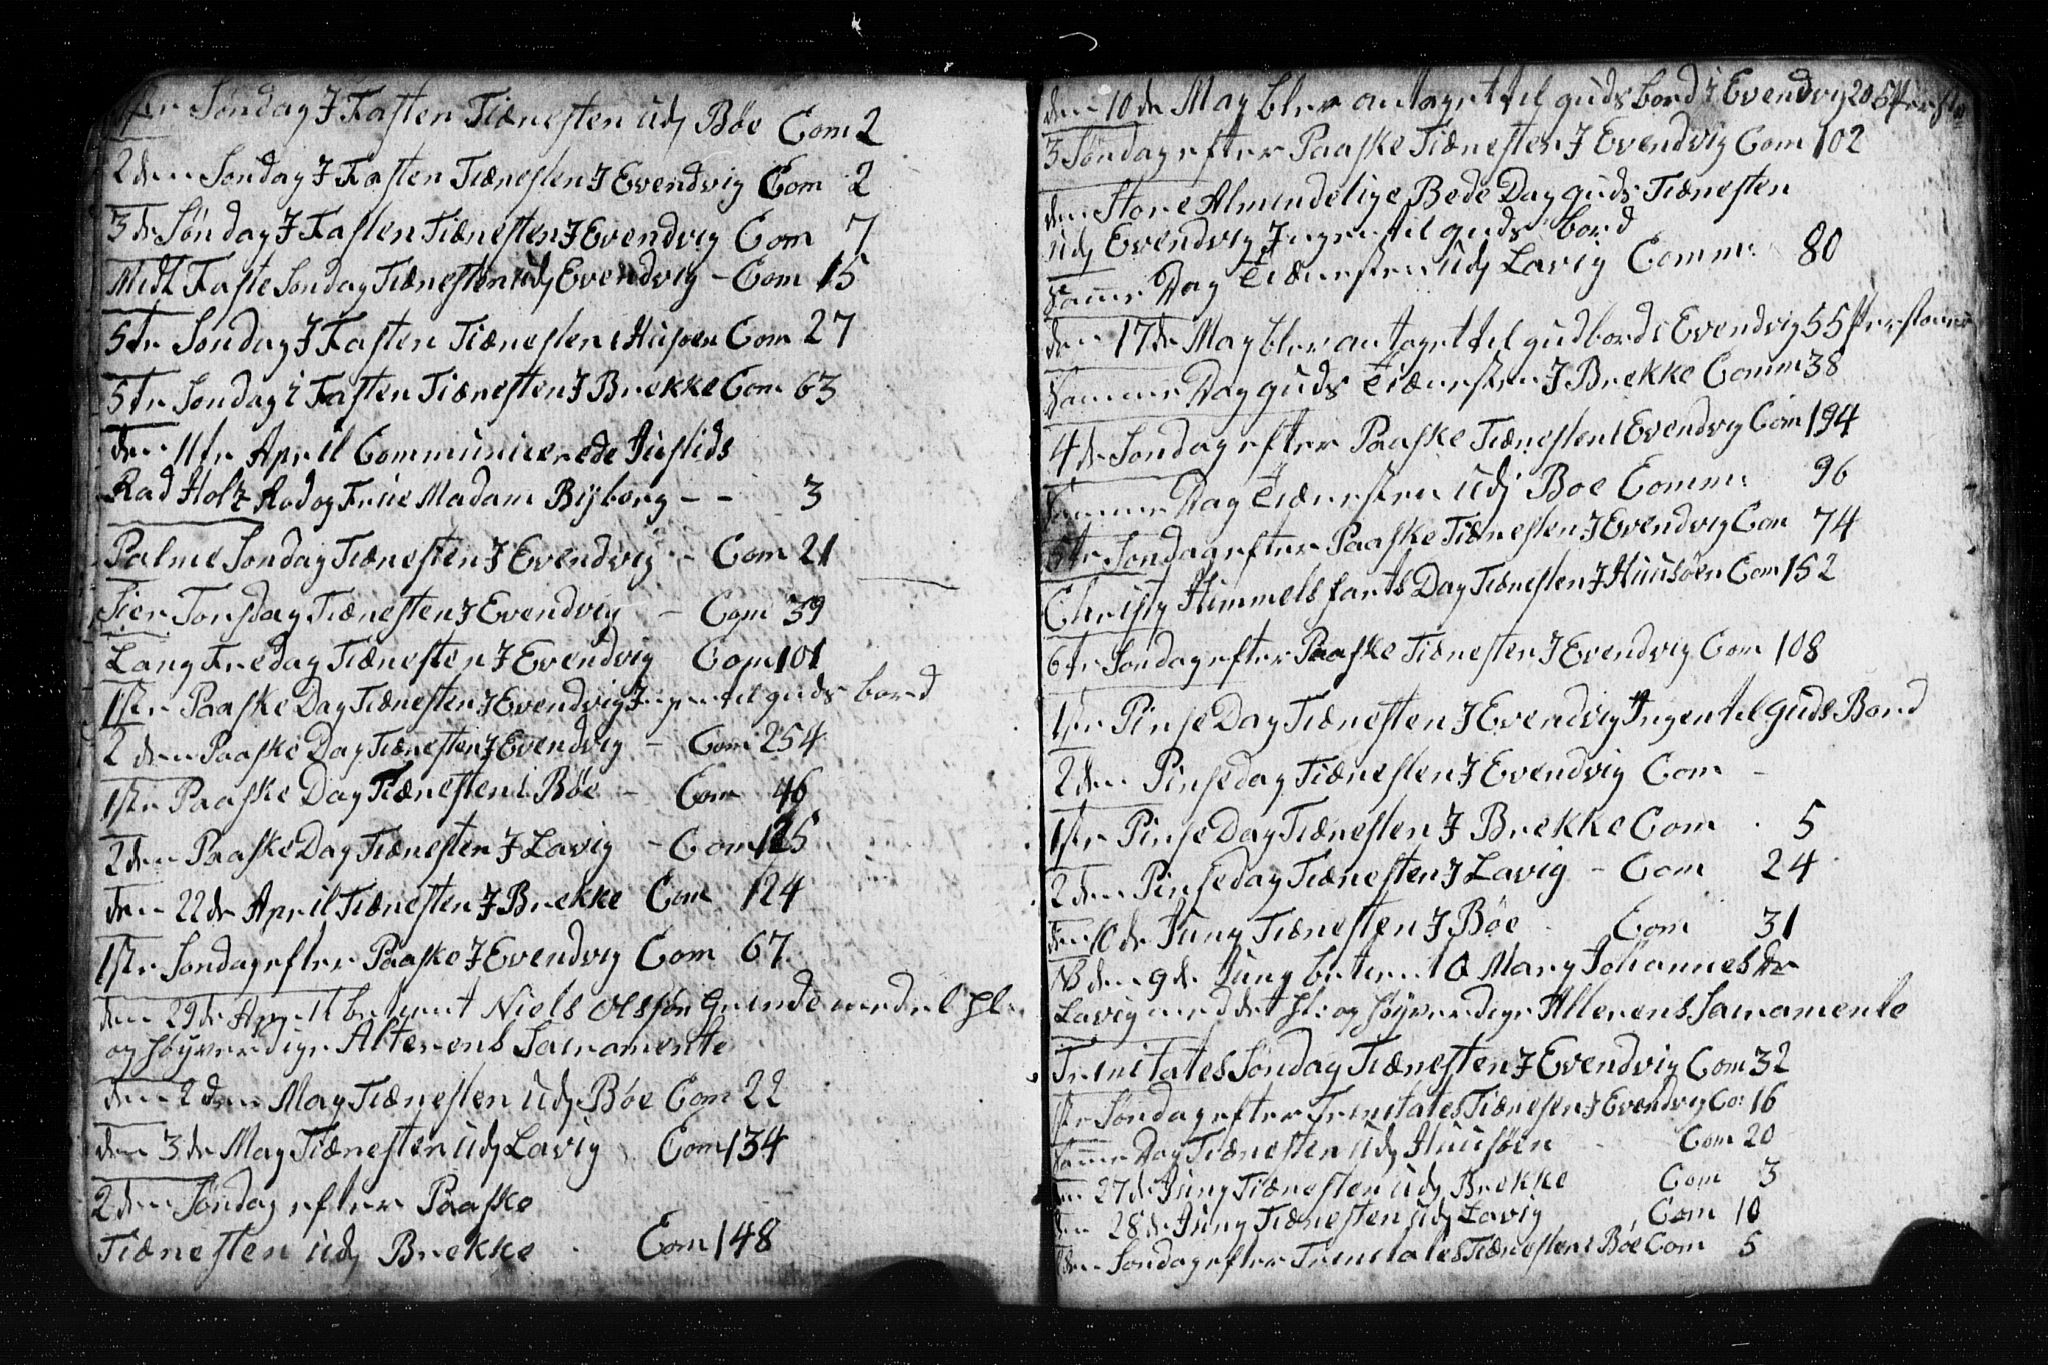 Søndag J Fasten Tiænesten udj Bøe Com 2
2den Søndag J Fasten Tiænesten J Evendvig Com 2
3de Søndag J Fasten Tiænesten J Evendvig Com 7
Midt Faste Søndag Tiænesten udj Evendvig - Com 15
5te Søndag J Fasten Tiænesten i Husøen Com 27
5te Søndag i Fasten Tiænesten J Brekke Com 63
den 11te April Communicerede Justids
Rad Holtz og Frue Madam Byborg - - 3
Palme Søndag Tiænesten J Evendvig - Com 21
Sier Torsdag Tiænesten J Evendvig - Com 39
Lang Fredag Tiænesten J Evendvig Com 101
1ste Paaske Dag Tiænesten J Evendvig Ingen til guds bord
2den Paaske Dag Tiænesten J Evendvig - Com 254
1ste Paaske Dag Tiænesten i Bøe - Com 46
2den Paaske Dag Tiænesten J Lavig - Com 125
den 22de April Tiænesten J Brekke Com 124
1ste Søndag efter Paaske J Evendvig Com 67
den 29de April betient Niels Olssøn Grinde med det hl:
og høyværdige Alterens Sacramente
den 2den May Tiænesten udj Bøe Com 22
den 3de May Tiænesten udj Lavig Com 134
2den Søndag efter Paaske
Tiænesten udj Brekke Com 148
den 10de May blev antaget til guds bord i Evendvig 20
3 Søndag efter Paaske Tiænesten J Evendvig Com 102
den Store Almindelige Bede Dag guds Tiænesten
udj Evendvig Ingen til guds bord
Samme Dag Tiænesten udj Lavig Comm: 80
den 17de May blev antaget til gudbord i Evendvig 55
Samme Dag guds Tiænesten J Brekke Comm 38
4de Søndag efter Paaske Tiænesten i Evendvig Com 194
Samme Dag Tiænesten udj Boe Comm: 96
5te Søndag efter Paaske Tiænesten J Evendvig Com 74
Christy Himmelsfarts Dag Tiænesten J Huusøen Com 152
6te Søndag efter Paaske Tiænesten J Evendvig Com 108
1ste Pinse Dag Tiænesten J Evendvig Ingen til Guds Bord
2den Pinsedag Tiænesten J Evendvig Com -
1ste Pinse Dag Tiænesten J Brekke Com 5
2den Pinsedag Tiænesten J Lavig - Com 24
den 10de Juny Tiænesten J Bøe Com 31
NB den 9de Juny betient Mary Johannesdr
Lavig med det hl: og høyværdige Alterens Sacramente
Trinitates Søndag Tiænesten J Evendvig Com 32
1ste Søndag efter Trinitates Tiænesten J Evendvig Co: 16
Samme Dag Tiænesten udj Huusøen Com 20
den 27de Juny Tiænesten udj Brekke Com 3
den 28de Juny Tiænesten udj Lavig Com 10
2den Søndag efter Trinitates Tiænesten i Bøe Com 5